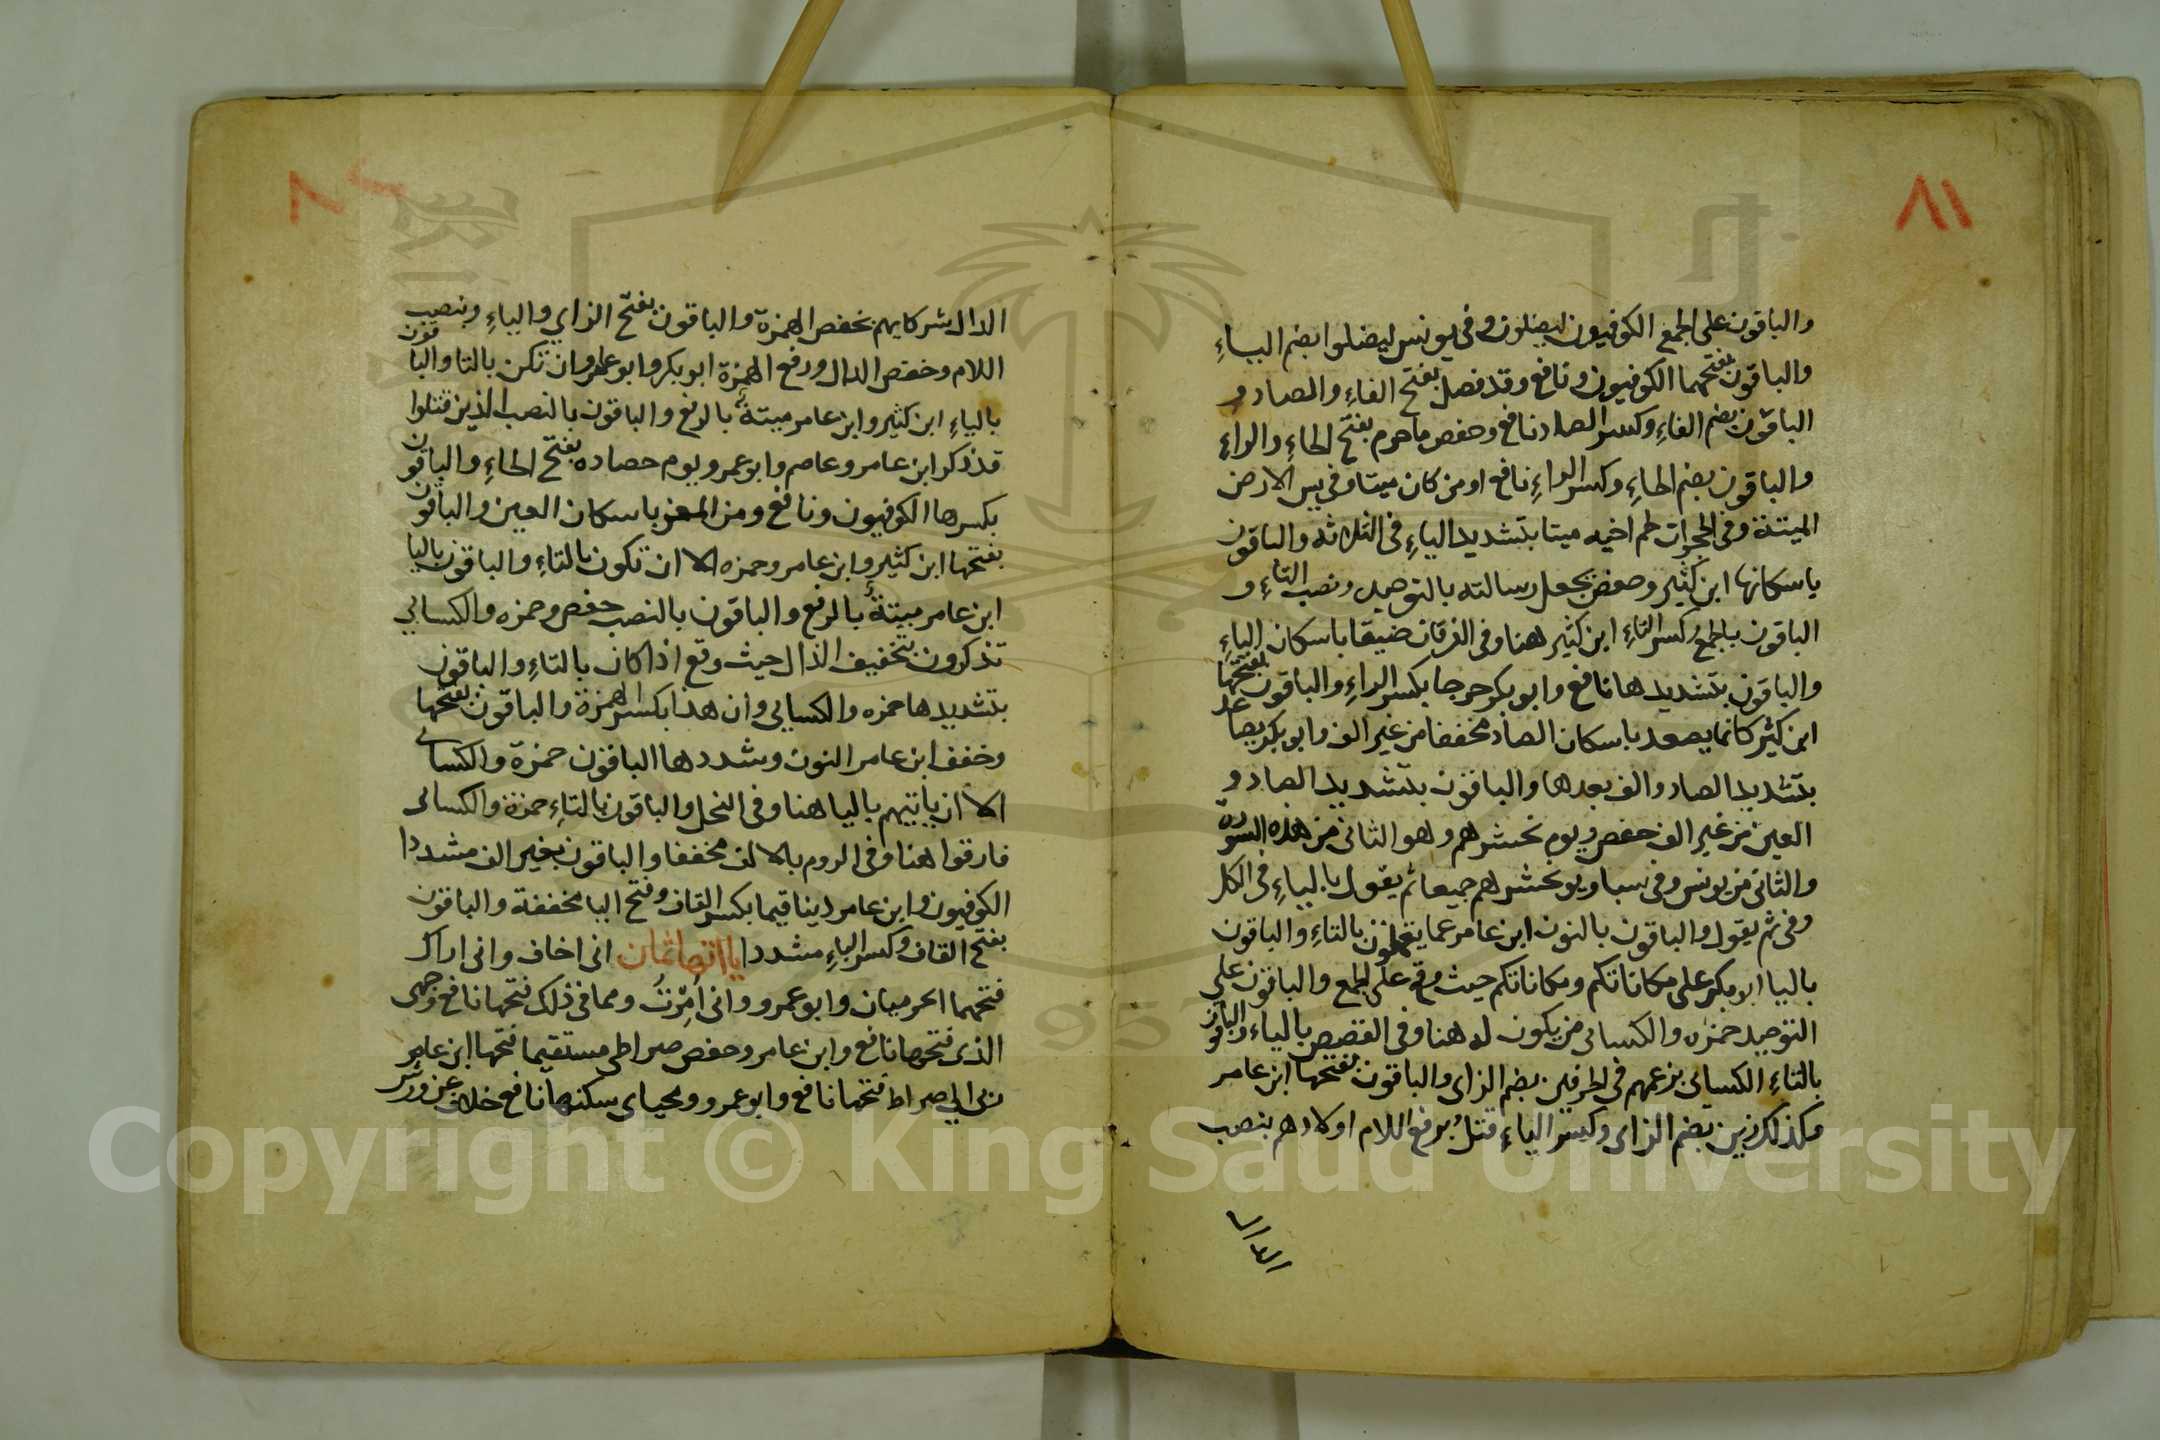 ٨١
والباقون على الجمع الكوفيون ليضلون وفي يونس ليضلوا بضم الياء
والباقون بفتحهما الكوفيون ونافع وقد فصل بفتح الفاء والصاد و
الباقون بضم الفاء وكسر الصاد نافع وحفص ما حرم بفتح الحاء والراء
والباقون بضم الحاء وكسر الراء نافع او من كان ميتا وفي يس الارض
الميتة وفي الحجرات لحم اخيه ميتا بتشديد الياء في الثلاثه والباقون
باسكانها ابن كثير وحفص يجعل رسالته بالتوحيد ونصب التاء و
الباقون بالجمع وكسر التاء ابن كثير هنا وفي الفرقان ضيقا باسكان الياء
والباقون بتشديدها نافع وابو بكر حرجا بكسر الراء والباقون بفتحها
ابن كثير كانما يصعد باسكان الصاد مخففا من غير الف وابو بكر يصاعد
بتشديد الصاد والف بعدها والباقون بتشديد الصاد و
العين من غير الف حفص ويوم نحشرهم وهو الثاني من هذه السورة
والثاني من يونس وفي سبا ويو نحشرهم جميعا ثم يقول بالياء في الكل
وفي ثم يقول والباقون بالنون ابن عامر عما يعملون بالتاء والباقون
باليا ابو بكر على مكاناتكم ومكاناتكم حيث وقع على الجمع والباقون على
التوحيد حمزه والكسائي من يكون له هنا وفي القصص بالياء والباقون
بالتاء الكسائي بزعمهم في الحرفين بضم الزاي والباقون بفتحها ابن عامر
وكذلك زين بضم الزاي وكسر الياء قتل برفع اللام اولادهم بنصب
الدال
٨٢
الدال شركايهم بخفض الهمزة والباقون بفتح الزاي والياء وبنصب
اللام وخفض الدال ورفع الهمزة ابو بكر وابو عامر وان تكن بالتا والباقون
بالياء ابن كثير وابن عامر ميتة بالرفع والباقون بالنصب الذين قتلوا
قد ذكر ابن عامر وعاصم وابو عمرو يوم حصاده بفتح الحاء والباقون
بكسرها الكوفيون ونافع ومن المعز باسكان العين والباقون
بفتحها ابن كثير وابن عامر وحمزه الا ان تكون بالتاء والباقون باليا
ابن عامر ميتة بالرفع والباقون بالنصب حفص وحمزه والكسائي
تذكرون بتخفيف الذال حيث وقع اذا كان بالتاء والباقون
بتشديدها حمزه والكسائي وان هذا بكسر الهمزة والباقون بفتحها
وخفف ابن عامر النون وشددها الباقون حمزة والكسائي
الا ان ياتيهم باليا هنا وفي النحل والباقون بالتاء حمزة والكسائي
فارقوا هنا وفي الروم بالالف مخففا والباقون بغير الف مشددا
الكوفيون وابن عامر دينا قيما بكسر القاف وفتح اليا مخففة والباقون
بفتح القاف وكسر الياء مشددا ياااتها ثمان اني اخاف واني اراك
فتحهما الحرميان وابو عمرو واني امرت ومماتي ذلك فتحها نافع وجهي
الذي فتحها نافع وابن عامر وحفص صراطي مستقيما فتحها ابن عامر
ربي الى صراط فتحها نافع وابو عمرو ومحياي سكنها نافع خلاف عن ورش
Copyright © King Saud University